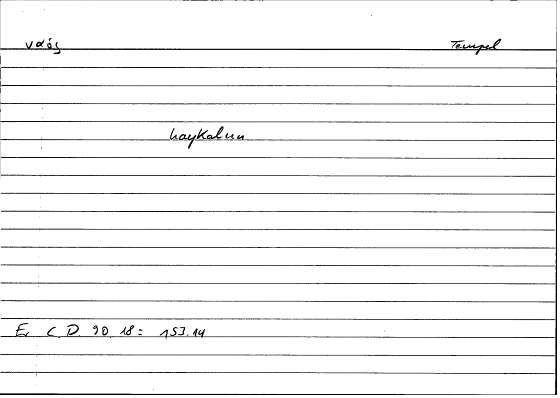 ναός Tempel
haykalun
E. C. D. 90. 18 = 153.14